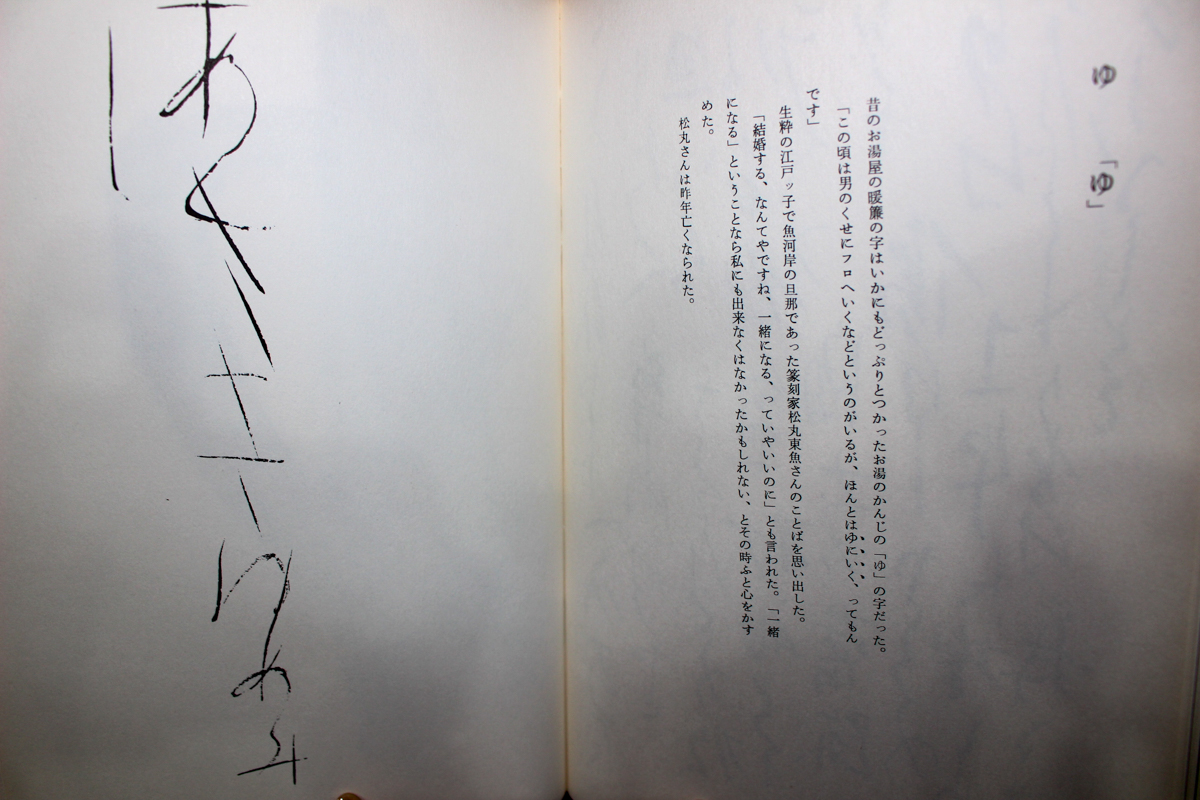 ゆ 「ゆ」
昔のお湯屋の暖簾の字はいかにもどっぷりとつかったお湯のかんじの「ゆ」の字だった。
「この頃は男のくせにフロへいくなどというのがいるが、ほんとはゆにいく、ってもん
です」
生粋の江戸ッ子で魚河岸の旦那であった篆刻家松丸東魚さんのことばを思い出した。
「結婚する、なんてやですね、一緒になる、っていやいいのに」とも言われた。「一緒
になる」ということなら私にも出来なくはなかったかもしれない、とその時ふと心をかす
めた。
松丸さんは昨年亡くなられた。